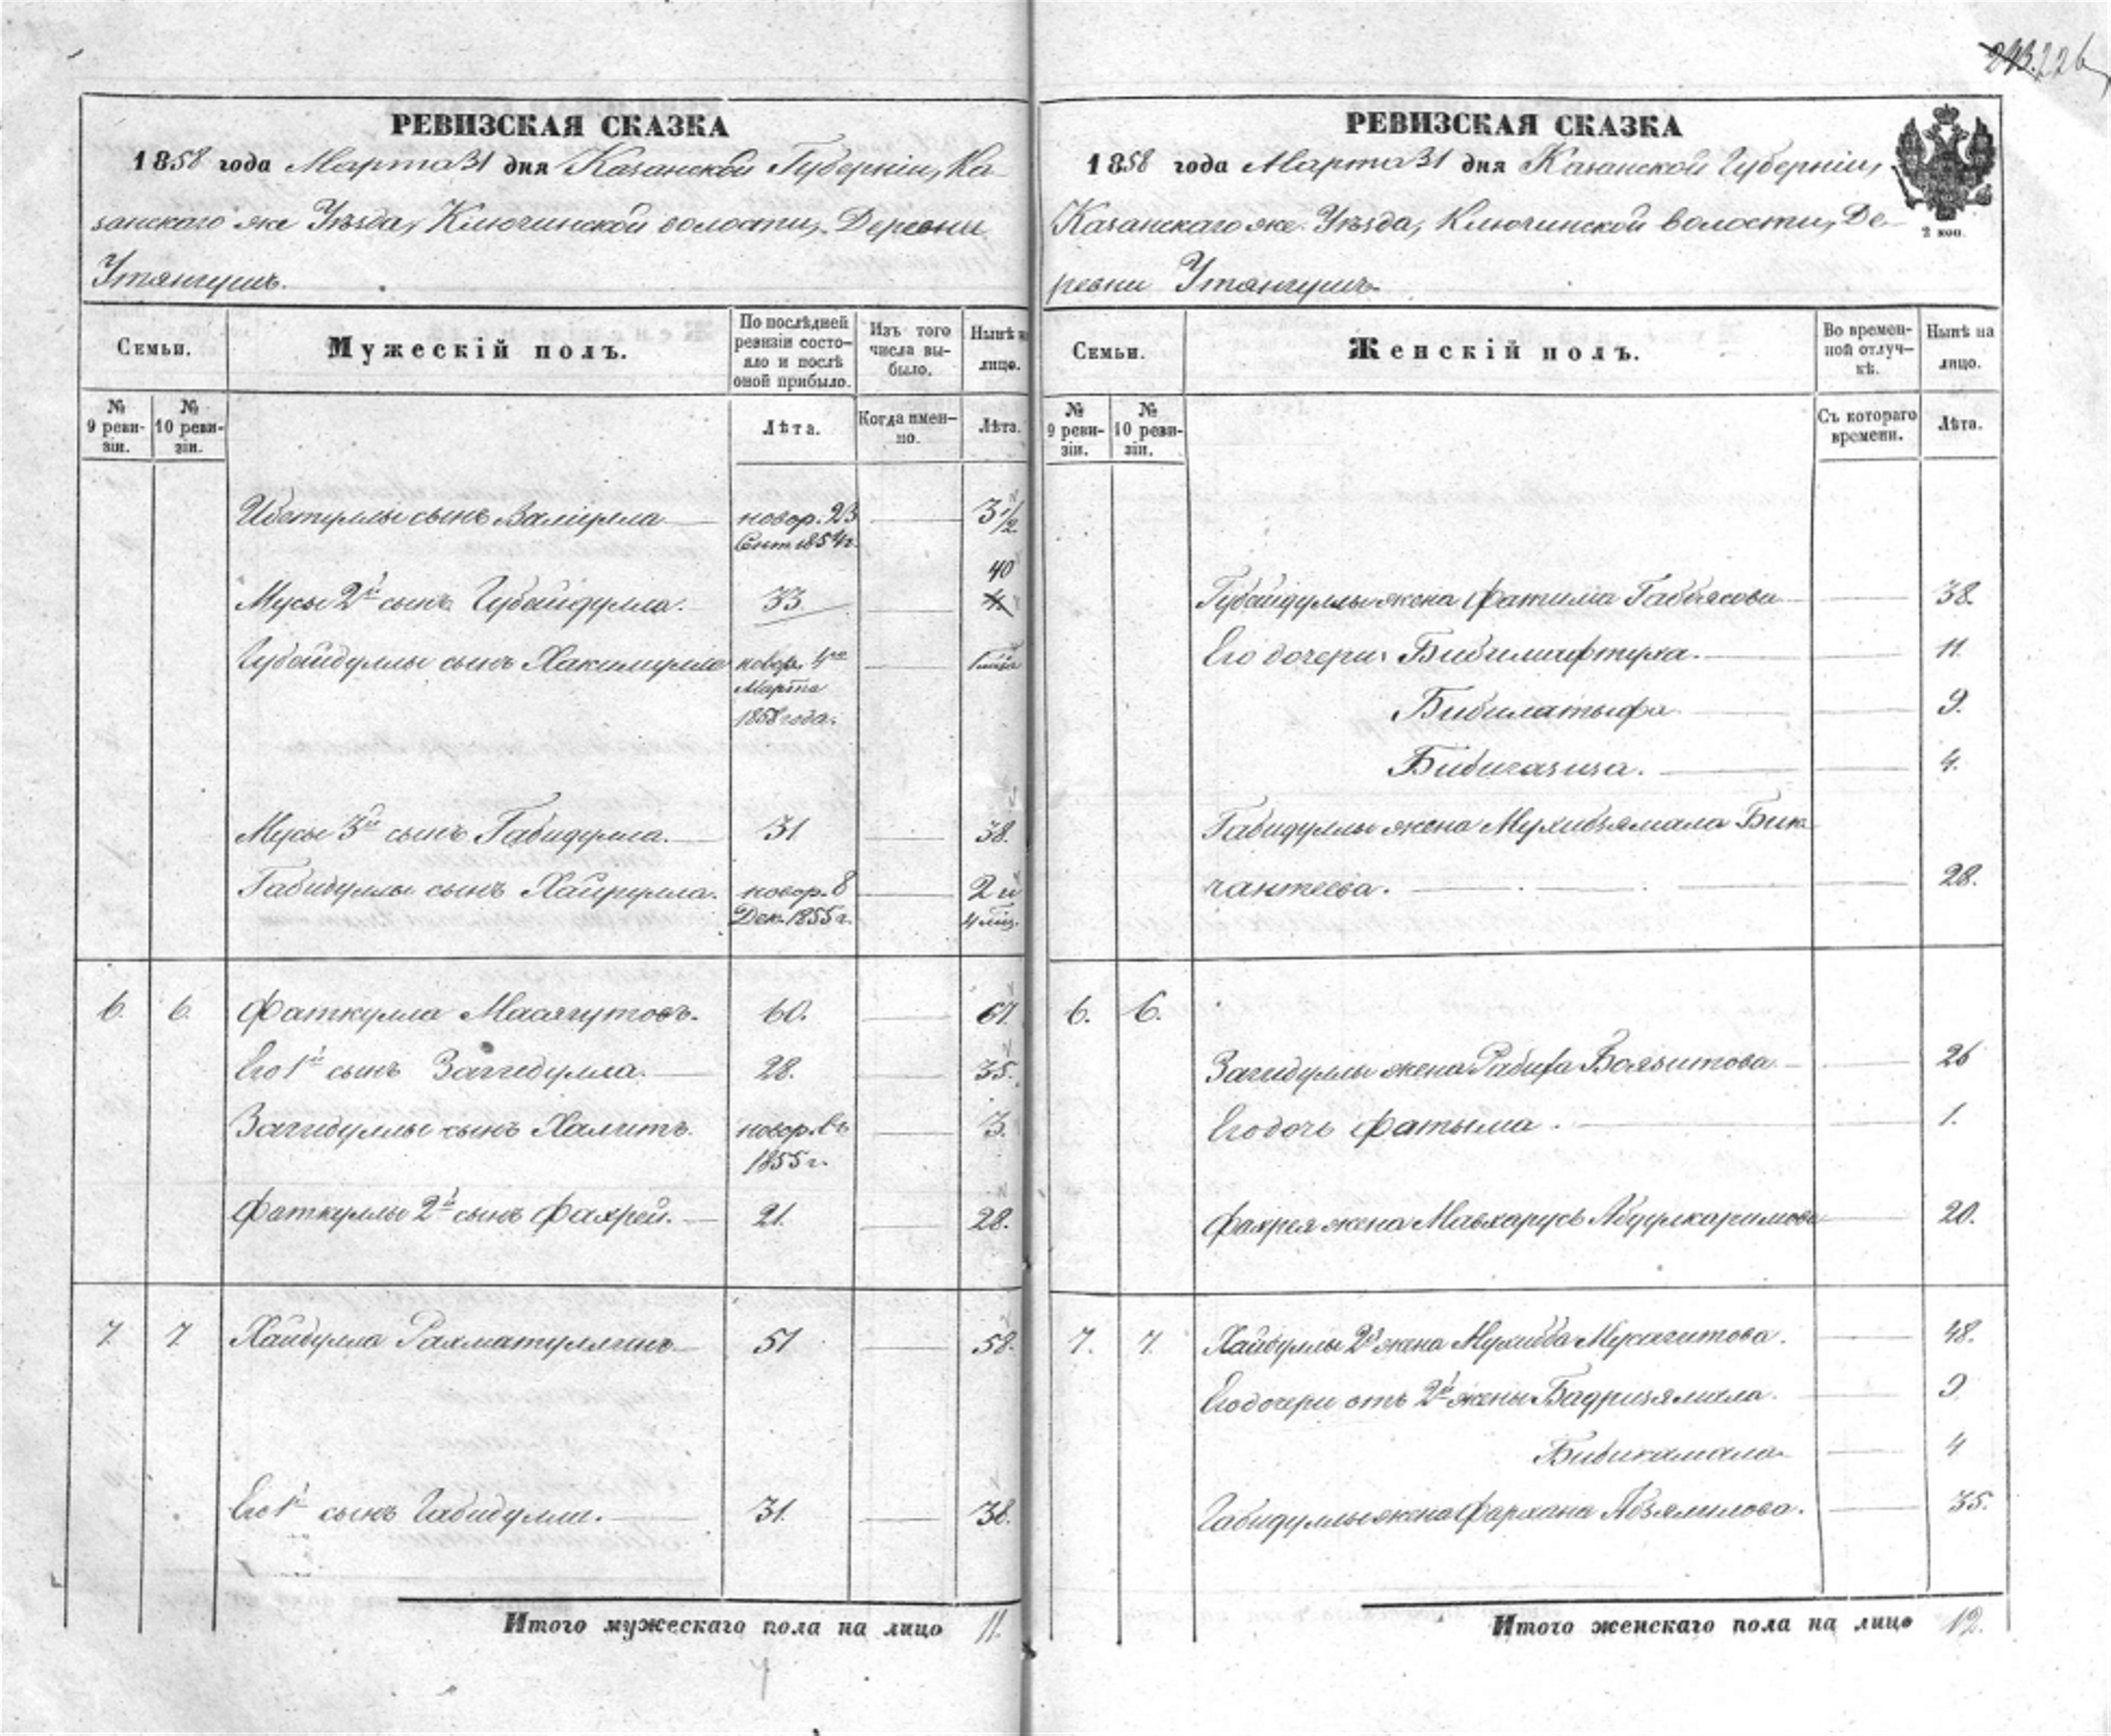 243. 226
РЕВИЗСКАЯ СКАЗКА
1858 года Марта 31 дня Казанской Губерніи, Ка-
занскаго же Уѣзда, Ключинской волости, Деревни
Утянгушъ.
Семьи.
Мужескій полъ.
По послѣдней ревизіи состояло и послѣ оной прибыло.
Изъ того числа выбыло.
Нынѣ на лицо.
№ 9 ревизіи.
№ 10 ревизіи.
Лѣта.
Когда именно.
Лѣта.
сынъ Валиулла новор. 23 3 1/2
Сент. 1854 г.
40
Мусы 2й сынъ Губайдулла. 33
Губайдуллы сынъ Хакимулла новор. 4го
Марта
1858 года.
Мусы 3й сынъ Габидулла. 31 38.
Габидуллы сынъ Хайрулла. новор. 8 2 и
Дек. 1855 г. 4 мѣс.
6. 6. Фаткулла Масягутовъ. 60. 67.
Его 1й сынъ Загидулла. 28. 35.
Загидуллы сынъ Халитъ. новор. въ 3.
1855 г.
Фаткуллы 2й сынъ Фахрей. 21. 28.
7. 7. Хайбулла Рахматуллинъ 51 58.
Его 1й сынъ Габидулла. 31. 38.
Итого мужескаго пола на лицо 11.
РЕВИЗСКАЯ СКАЗКА
1858 года Марта 31 дня Казанской Губерніи,
Казанскаго же Уѣзда, Ключинской волости, Де-
ревни Утянгушъ.
2 коп.
Семьи.
Женскій полъ.
Во временной отлучкѣ.
Нынѣ на лицо.
№ 9 ревизіи.
№ 10 ревизіи.
Съ котораго времени.
Лѣта.
Губайдуллы жена Фатима Габбясова 38.
Его дочери: Бибимифтуха. 11.
Бибилатыфа 9.
Бибигазиза. 4.
Габидуллы жена Мухибзямала Бик-
чантеева. 28.
6. 6.
Загидуллы жена Рабига Боязитова 26
Его дочь Фатыма. 1.
Фахрея жена Мавхарусь Абдулкаримова 20.
7. 7. Хайбуллы 2я жена Мухиба Мусагитова. 48.
Его дочери отъ 2й жены Бадризямала. 9
Бибикамала 4
Габидуллы жена Фархана Абзялилова. 35.
Итого женскаго пола на лицо 12.